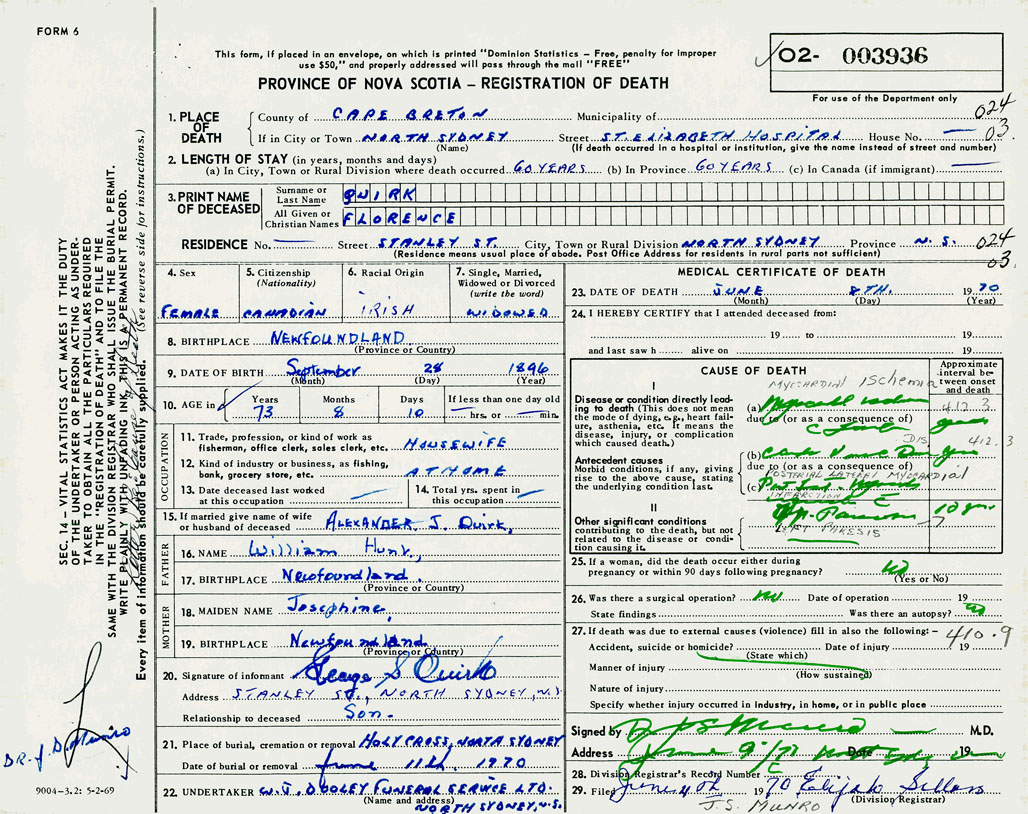 FORM 6
This form, if placed in an envelope, on which is printed "Dominion Statistics – Free, penalty for improper
use $50," and properly addressed will pass through the mail "FREE"
PROVINCE OF NOVA SCOTIA – REGISTRATION OF DEATH
02- 003936
For use of the Department only
024
03.
1. PLACE OF DEATH
County of CAPE BRETON Municipality of
If in City or Town NORTH SYDNEY Street ST. ELIZABETH HOSPITAL House No. —
(Name) (If death occurred in a hospital or institution, give the name instead of street and number)
2. LENGTH OF STAY (in years, months and days)
(a) In City, Town or Rural Division where death occurred 60 YEARS (b) In Province 60 YEARS (c) In Canada (if immigrant) —
3. PRINT NAME OF DECEASED
Surname or Last Name QUIRK
All Given or Christian Names FLORENCE
RESIDENCE No. — Street STANLEY ST. City, Town or Rural Division NORTH SYDNEY Province N. S. 024
(Residence means usual place of abode. Post Office Address for residents in rural parts not sufficient)
03.
4. Sex
FEMALE
5. Citizenship
(Nationality)
CANADIAN
6. Racial Origin
IRISH
7. Single, Married,
Widowed or Divorced
(write the word)
WIDOWED
8. BIRTHPLACE NEWFOUNDLAND
(Province or Country)
9. DATE OF BIRTH September 28 1896
(Month) (Day) (Year)
10. AGE in
Years Months Days If less than one day old
73 8 10 hrs. or min.
OCCUPATION
11. Trade, profession, or kind of work as
fisherman, office clerk, sales clerk, etc. HOUSEWIFE
12. Kind of industry or business, as fishing,
bank, grocery store, etc. AT HOME
13. Date deceased last worked
at this occupation —
14. Total yrs. spent in
this occupation —
15. If married give name of wife
or husband of deceased ALEXANDER J. Quirk,
FATHER
16. NAME William Hunt,
17. BIRTHPLACE Newfoundland.
(Province or Country)
MOTHER
18. MAIDEN NAME Josephine,
19. BIRTHPLACE Newfoundland
(Province or Country)
20. Signature of informant George S Quirk
Address STANLEY ST., NORTH SYDNEY, N.S.
Relationship to deceased Son.
21. Place of burial, cremation or removal HOLY CROSS, NORTH SYDNEY
Date of burial or removal June 11th, 1970
22. UNDERTAKER W. J. DOOLEY FUNERAL SERVICE LTD.
(Name and address)
NORTH SYDNEY, N.S.
MEDICAL CERTIFICATE OF DEATH
23. DATE OF DEATH JUNE 8TH. 1970
(Month) (Day) (Year)
24. I HEREBY CERTIFY that I attended deceased from:
19 to 19
and last saw h alive on 19
CAUSE OF DEATH
Approximate
interval be-
tween onset
and death
I
MYOCARDIAL ISCHEMIA
Disease or condition directly lead-
ing to death (This does not mean
the mode of dying, e.g., heart fail-
ure, asthenia, etc. It means the
disease, injury, or complication
which caused death.)
(a)
412.3
due to (or as a consequence of)
DIS.
412.3
Antecedent causes
Morbid conditions, if any, giving
rise to the above cause, stating
the underlying condition last.
(b)
due to (or as a consequence of)
POSTERIAL LATERAL MYOCARDIAL
(c)
INFARCTION
II
Other significant conditions
contributing to the death, but not
related to the disease or condi-
tion causing it.
LEFT PARESIS
25. If a woman, did the death occur either during
pregnancy or within 90 days following pregnancy? No
(Yes or No)
26. Was there a surgical operation? No Date of operation 19
State findings Was there an autopsy? No
27. If death was due to external causes (violence) fill in also the following: – 410.9
Accident, suicide or homicide? Date of injury 19
(State which)
Manner of injury
(How sustained)
Nature of injury
Specify whether injury occurred in industry, in home, or in public place
Signed by M.D.
Address Date 19
28. Division Registrar's Record Number
29. Filed 1970 Elijah
J.S. MUNRO (Division Registrar)
SEC. 14 – VITAL STATISTICS ACT MAKES IT THE DUTY
OF THE UNDERTAKER OR PERSON ACTING AS UNDER-
TAKER TO OBTAIN ALL THE PARTICULARS REQUIRED
IN THE "REGISTRATION OF DEATH" AND TO FILE THE
SAME WITH THE DIVISION REGISTRAR WHO SHALL ISSUE THE BURIAL PERMIT.
WRITE PLAINLY WITH UNFADING INK, THIS IS A PERMANENT RECORD.
Every item of information should be carefully supplied. (See reverse side for instructions.)
DR. J. D. Munro
9004–3.2: 5-2-69